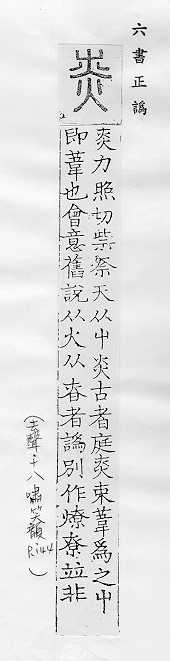 六書正譌
力照切祡祭天从屮炎古者庭束葦爲之屮
即葦也會意舊說从火从昚者譌別作燎寮竝非
(去聲十八嘯笑韻 R144)